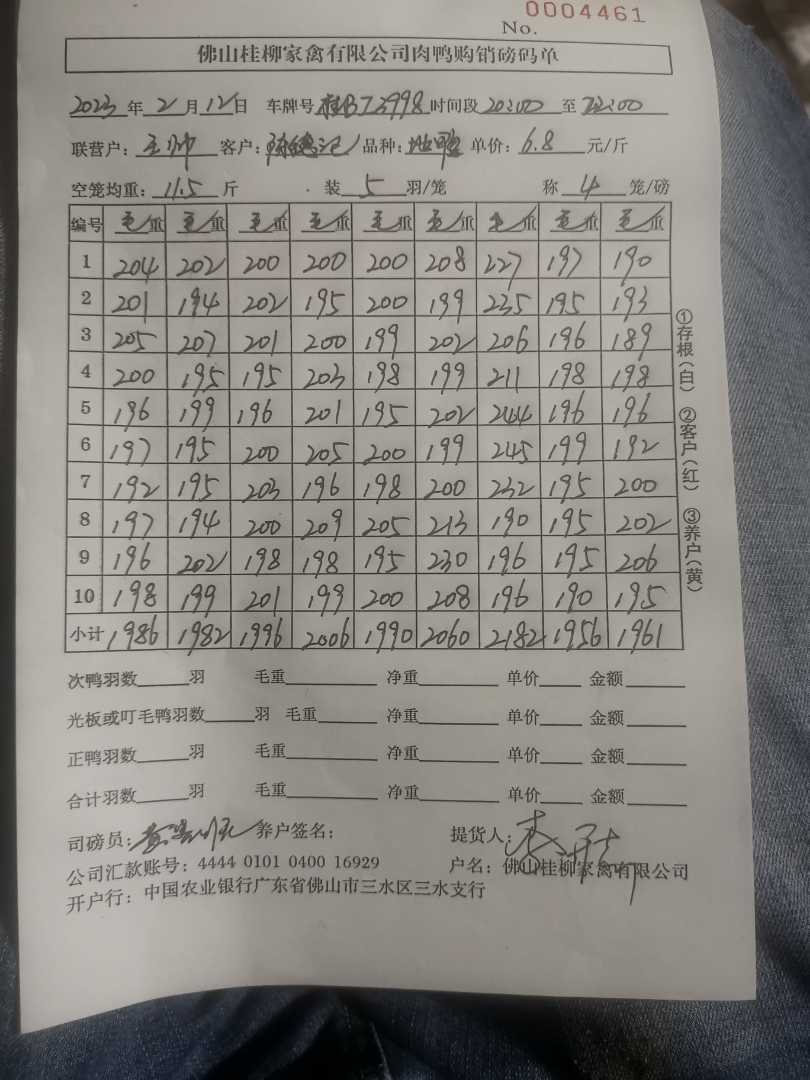 0004461
No.
佛山桂柳家禽有限公司肉鸭购销磅码单
2023年2月12日 车牌号桂B72998时间段20:00至22:00
联营户：王帅 客户： 品种： 单价：6.8元/斤
空笼均重：11.5斤 装5羽/笼 称4笼/磅
编号 毛重 毛重 毛重 毛重 毛重 毛重 毛重 毛重 毛重
1 204 202 200 200 200 208 227 197 190
2 201 194 202 195 200 199 235 195 193
3 205 207 201 200 199 202 206 196 189
4 200 195 195 203 198 199 211 198 198
5 196 199 196 201 195 202 244 196 196
6 197 195 200 205 200 199 245 199 192
7 192 195 203 196 198 200 232 195 200
8 197 194 200 209 205 213 190 195 202
9 196 202 198 198 195 230 196 195 206
10 198 199 201 199 200 208 196 190 195
小计 1986 1982 1996 2006 1990 2060 2182 1956 1961
①存根(白) ②客户(红) ③养户(黄)
次鸭羽数 羽 毛重 净重 单价 金额
光板或叮毛鸭羽数 羽 毛重 净重 单价 金额
正鸭羽数 羽 毛重 净重 单价 金额
合计羽数 羽 毛重 净重 单价 金额
司磅员： 养户签名： 提货人：
公司汇款账号：4444 0101 0400 16929 户名：佛山桂柳家禽有限公司
开户行：中国农业银行广东省佛山市三水区三水支行